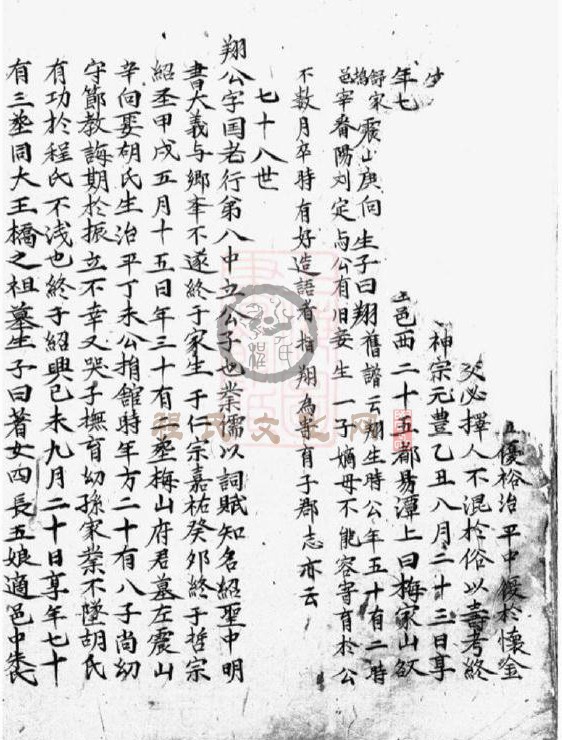 優裕治平中復於懷金
交必擇人不混於俗以壽考終
神宗元豊乙丑八月二十三日享
年七
邑西二十五都易潭上曰梅家山
震山庚向生子曰翔舊譜云翔生時公年五十有二時
邑宰番陽刘定与公有旧妾生一子嫡母不能容寄育於公
不数月卒時有好造語者指翔為寄育子郡志亦云
七十八世
翔公字国老行第八中立公子也業儒以詞賦知名紹聖中明
書大義与鄉牽不遂終于家生于仁宗嘉祐癸夘終于哲宗
紹圣甲戌五月十五日年三十有二塟梅山府君墓左震山
辛向娶胡氏生治平丁未公捐館時年方二十有八子尚幼
守節教誨期於振立不幸又哭子撫育幼孫家業不墜胡氏
有功於程氏不浅也終于紹興己未九月二十日享年七十
有三塟同大王橋之祖墓生子曰著女四長五娘適邑中朱氏
程氏文史网